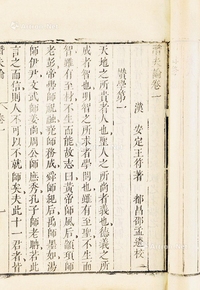 潛夫論卷一
漢 安定王符著 都昌鄧孟校
讚學第一
天地之所貴者人也聖人之所尚者義也德義之所
成者智也明智之所求者學問也雖有至聖不生而
智雖有至材不生而能故志曰黃帝師風后顓頊師
老彭帝嚳師祝融堯師務成舜師紀后禹師墨如湯
師伊尹文武師姜尚周公師庶秀孔子師老聃若此
言之而信則人不可以不就師矣夫此十一君者皆